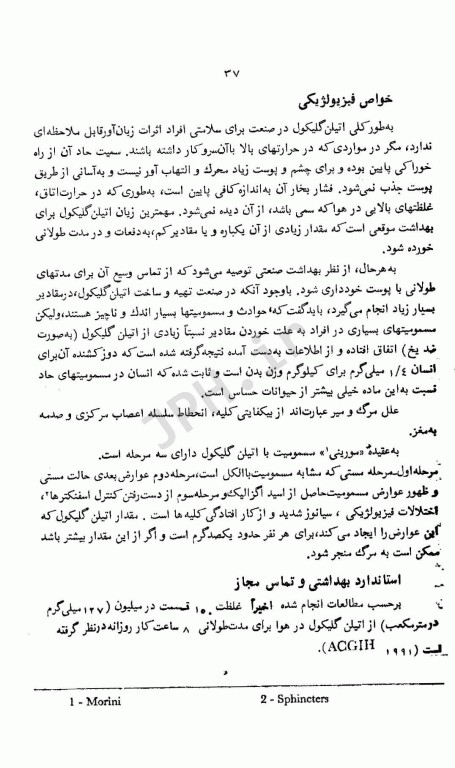 ۳۷
خواص فیزیولوژیکی
به‌طور کلی اتیلن‌گلیکول در صنعت برای سلامتی افراد اثرات زیان‌آور قابل ملاحظه‌ای
ندارد، مگر در مواردی که در حرارتهای بالا با آن سروکار داشته باشند. سمیت حاد آن از راه
خوراکی پایین بوده و برای چشم و پوست زیاد محرک و التهاب آور نیست و به‌آسانی از طریق
پوست جذب نمی‌شود. فشار بخار آن به‌اندازه کافی پایین است، به‌طوری که در حرارت اتاق،
غلظتهای بالایی در هوا که سمی باشد، از آن دیده نمی‌شود. مهمترین زیان اتیلن‌گلیکول برای
بهداشت موقعی است که مقدار زیادی از آن یکباره و یا مقادیر کم، به‌دفعات و در مدت طولانی
خورده شود.
به‌هرحال، از نظر بهداشت صنعتی توصیه می‌شود که از تماس وسیع آن برای مدتهای
طولانی با پوست خودداری شود. باوجود آنکه در صنعت تهیه و ساخت اتیلن گلیکول، در مقادیر
بسیار زیاد انجام می‌گیرد، باید گفت که حوادث و مسمومیتها بسیار اندک و ناچیز هستند، ولیکن
مسمومیتهای بسیاری در افراد به علت خوردن مقادیر نسبتاً زیادی از اتیلن گلیکول (به‌صورت
ضد یخ) اتفاق افتاده و از اطلاعات به‌دست آمده نتیجه گرفته شده است که دوز کشنده آن برای
انسان ۱/۴ میلی‌گرم برای کیلوگرم وزن بدن است و ثابت شده که انسان در مسمومیتهای حاد
نسبت به این ماده خیلی بیشتر از حیوانات حساس است.
علل مرگ و میر عبارت‌اند از بیکفایتی کلیه، انحطاط سلسله اعصاب مرکزی و صدمه
به‌مغز.
به‌عقیدهٔ «سورینی۱» مسمومیت با اتیلن گلیکول دارای سه مرحله است.
مرحله اول-مرحله مستی که مشابه مسمومیت با الکل است، مرحله دوم عوارض بعدی حالت مستی
و ظهور عوارض مسمومیت حاصل از اسید اگزالیک و مرحله سوم از دست رفتن کنترل اسفنکترها۲،
اختلالات فیزیولوژیکی ، سیانوز شدید و از کار افتادگی کلیه‌ها است . مقدار اتیلن گلیکول که
این عوارض را ایجاد می کند، برای هر نفر حدود یکصد گرم است و اگر از این مقدار بیشتر باشد
ممکن است به مرگ منجر شود.
استاندارد بهداشتی و تماس مجاز
برحسب مطالعات انجام شده اخیراً غلظت ۱۰ قسمت در میلیون (۱۲۷ میلی‌گرم
درمترمکعب) از اتیلن گلیکول در هوا برای مدت طولانی ۸ ساعت کار روزانه در نظر گرفته
است (ACGIH ۱۹۹۱).
1 - Morini 2 - Sphincters